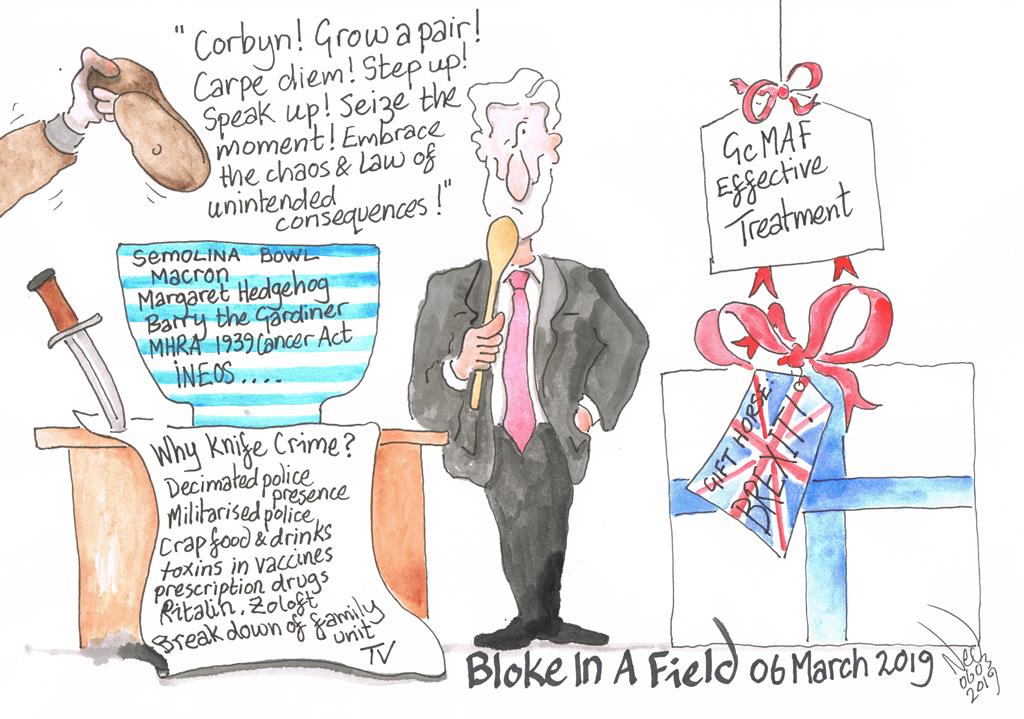 "Corbyn! Grow a pair!
Carpe diem! Step up!
Speak up! Seize the
moment! Embrace
the chaos & Law of
unintended
consequences!"
SEMOLINA BOWL
Macron
Margaret Hedgehog
Barry the Gardiner
MHRA 1939 Cancer Act
INEOS....
Why Knife Crime?
Decimated police
presence
Militarised police
Crap food & drinks
toxins in vaccines
prescription drugs
Ritalin. Zoloft
Break down of family
unit
TV
GcMAF
Effective
Treatment
GIFT HORSE
BREXIT!!
Bloke In A Field 06 March 2019
0603
2019